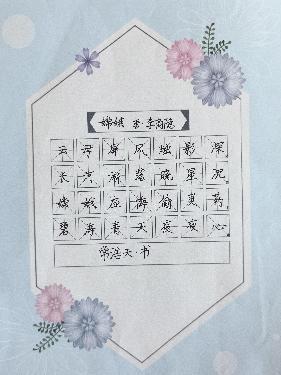 嫦娥 唐·李商隐
云母屏风烛影深
长河渐落晓星沉
嫦娥应悔偷灵药
碧海青天夜夜心
书